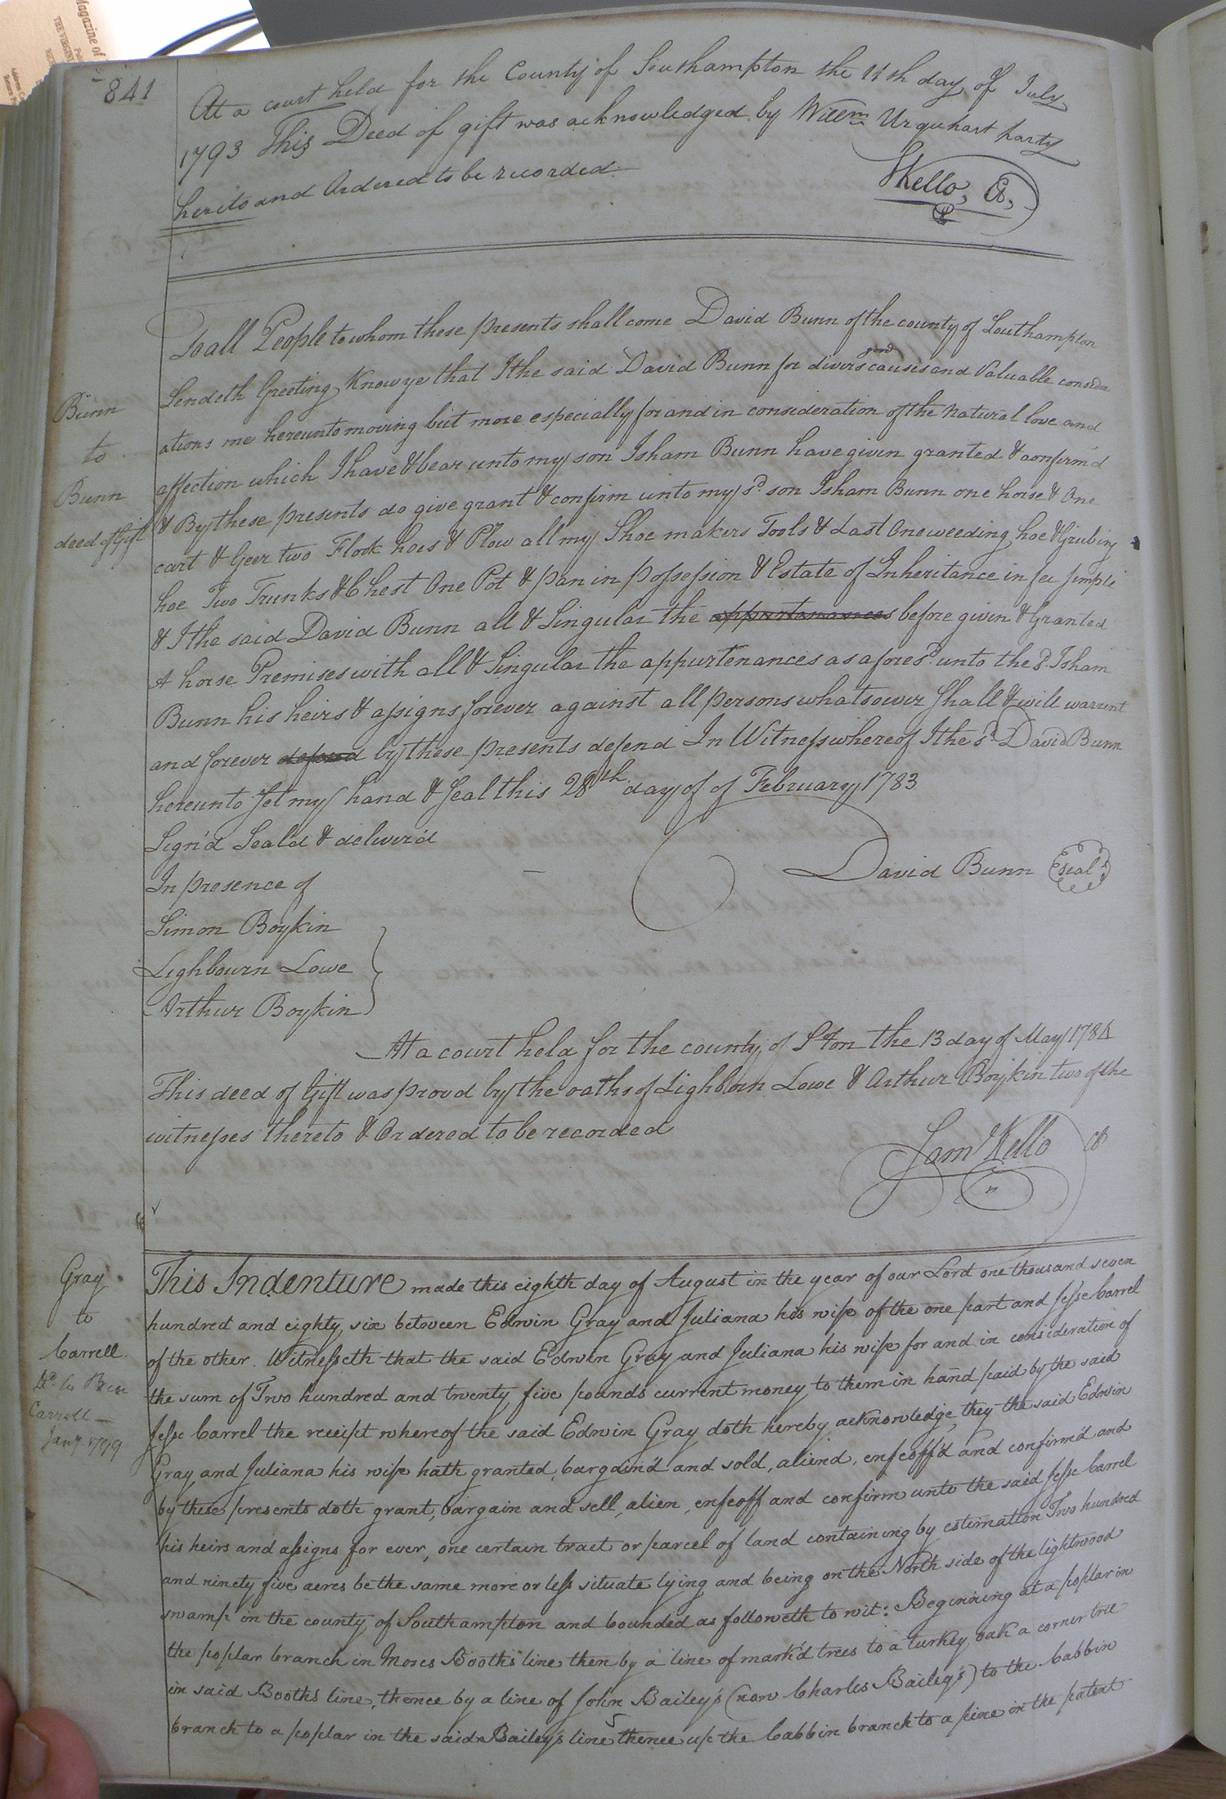 841
At a court held for the County of Southampton the 11th day of July
1793 This Deed of gift was acknowledged by Willm Urquhart party
hereto and Ordered to be recorded
SKello, Ct.
Bunn
to
Bunn
deed of Gift
To all People to whom these presents shall come David Bunn of the county of Southampton
Sendeth Greeting Know ye that I the said David Bunn for divers good causes and Valuable consider
ations me hereunto moving but more especially for and in consideration of the natural love and
affection which I have & bear unto my son Isham Bunn have given granted & confirm'd
& By these presents do give grant & confirm unto my sd. son Isham Bunn one horse & One
cart & Geer two Flook hoes & Plow all my Shoe makers Tools & Last One weeding hoe & Grubing
hoe Two Trunks & Chest One Pot & pan in possession & Estate of Inheritance in fee simple
& I the said David Bunn all & Singular the appurtenances before given & Granted
A horse Premises with all & Singular the appurtenances as aforesd. unto the sd. Isham
Bunn his heirs & assigns forever against all persons whatsoever Shall & will warrent
and forever defend by these presents defend In Witness whereof I the sd. David Bunn
hereunto set my hand & Seal this 28th day of of February 1783
Sign'd Seal'd & deliver'd
In presence of
David Bunn Seal
Simon Boykin
Lighbourn Lowe
Arthur Boykin
At a court held for the county of S Ton the 13 day of May 1784
This deed of Gift was proved by the oaths of Lighbourn Lowe & Arthur Boykin two of the
witnesses thereto & Ordered to be recorded
Saml Kello Ct
Gray
to
Carrell
Dd. to Ben
Carrell
Jany 1799
This Indenture made this eighth day of August in the year of our Lord one thousand seven
hundred and eighty six between Edwin Gray and Juliana his wife of the one part and Jesse Carrel
of the other. Witnesseth that the said Edwin Gray and Juliana his wife for and in consideration of
the sum of Two hundred and twenty five pounds current money to them in hand paid by the said
Jesse Carrel the receipt whereof the said Edwin Gray doth hereby acknowledge, they the said Edwin
Gray and Juliana his wife hath granted, bargain'd and sold, aliend, enfeoff'd and confirm'd and
by these presents doth grant, bargain and sell, alien, enfeoff and confirm unto the said Jesse Carrel
his heirs and assigns for ever, one certain tract or parcel of land containing by estimation Two hundred
and ninety five acres be the same more or less situate lying and being on the North side of the lightwood
swamp in the county of Southampton and bounded as followeth to wit: Beginning at a poplar in
the poplar branch in Moses Booths line then by a line of mark'd trees to a turkey oak a corner tree
in said Booths line, thence by a line of John Bailey's (now Charles Bailey's) to the Cabbin
branch to a poplar in the said Bailey's line thence up the Cabbin branch to a pine in the patent